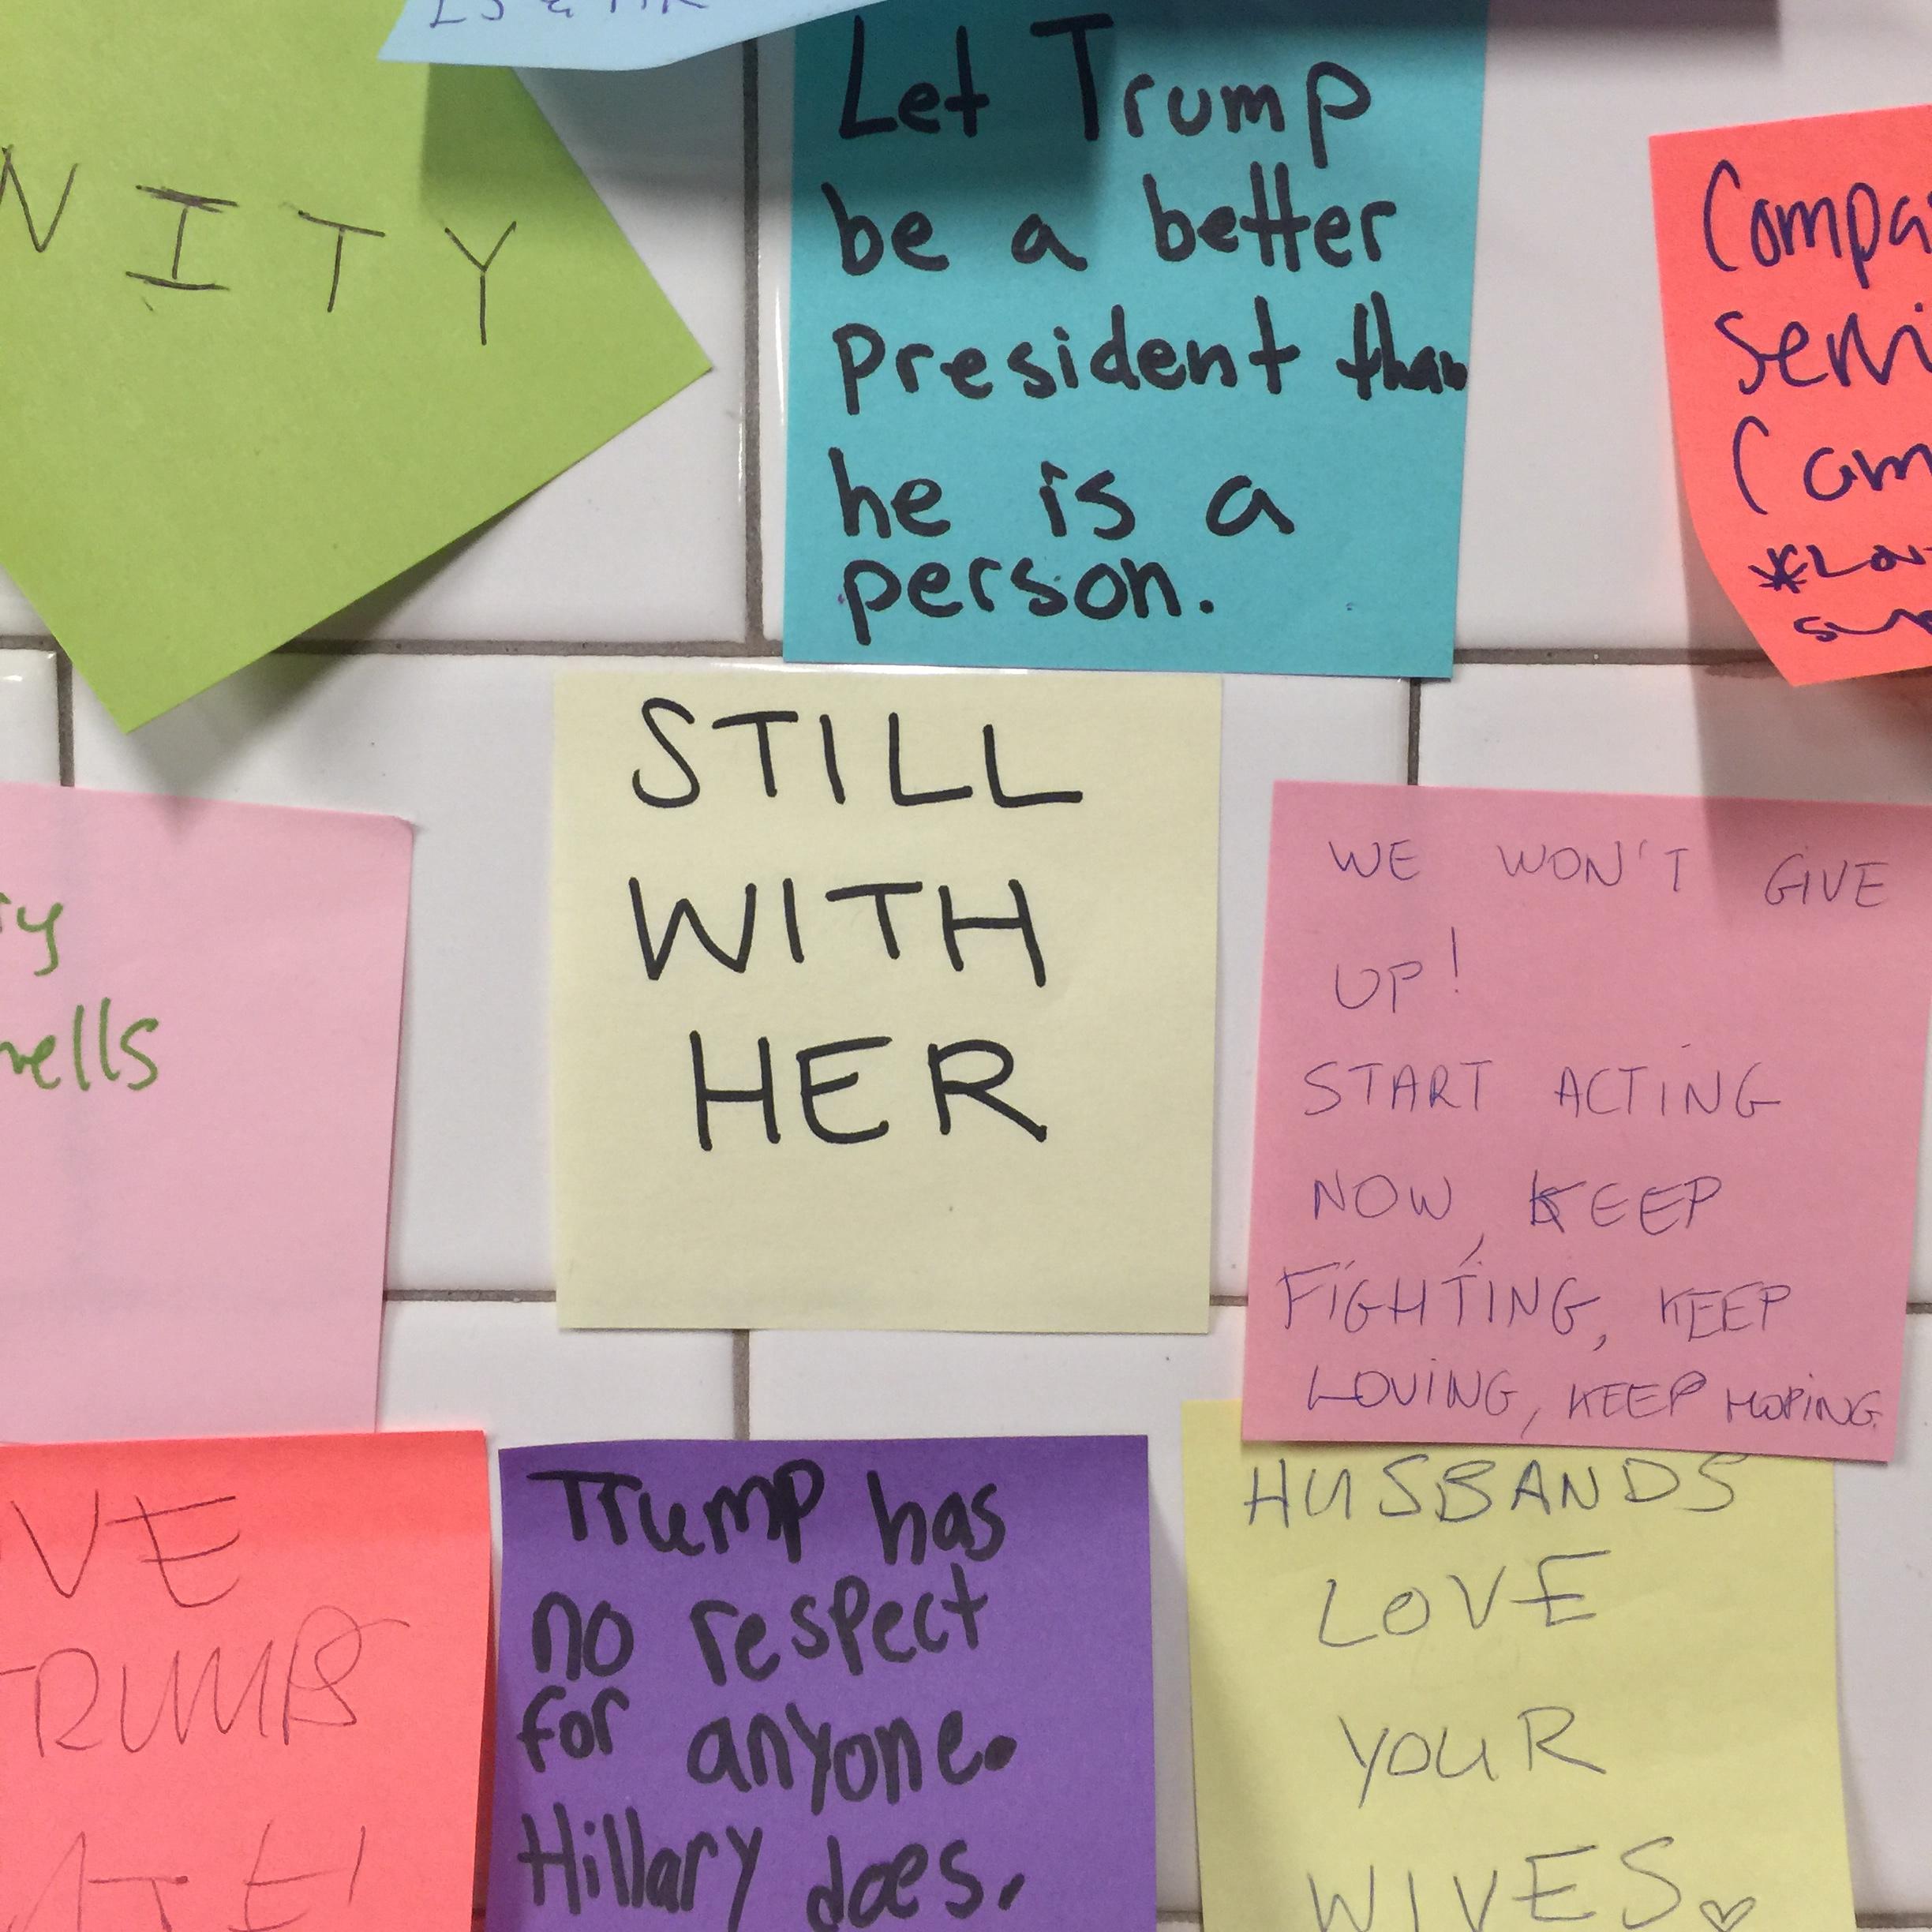 NITY
Let Trump
be a better
president than
he is a
person.
STILL
WITH
HER
WE WON'T GIVE
UP!
START ACTING
NOW, KEEP
FIGHTING, KEEP
LOVING, KEEP HOPING.
VE
TRUMPS
ATE!
Trump has
no respect
for anyone.
Hillary does.
HUSBANDS
LOVE
YOUR
WIVES.